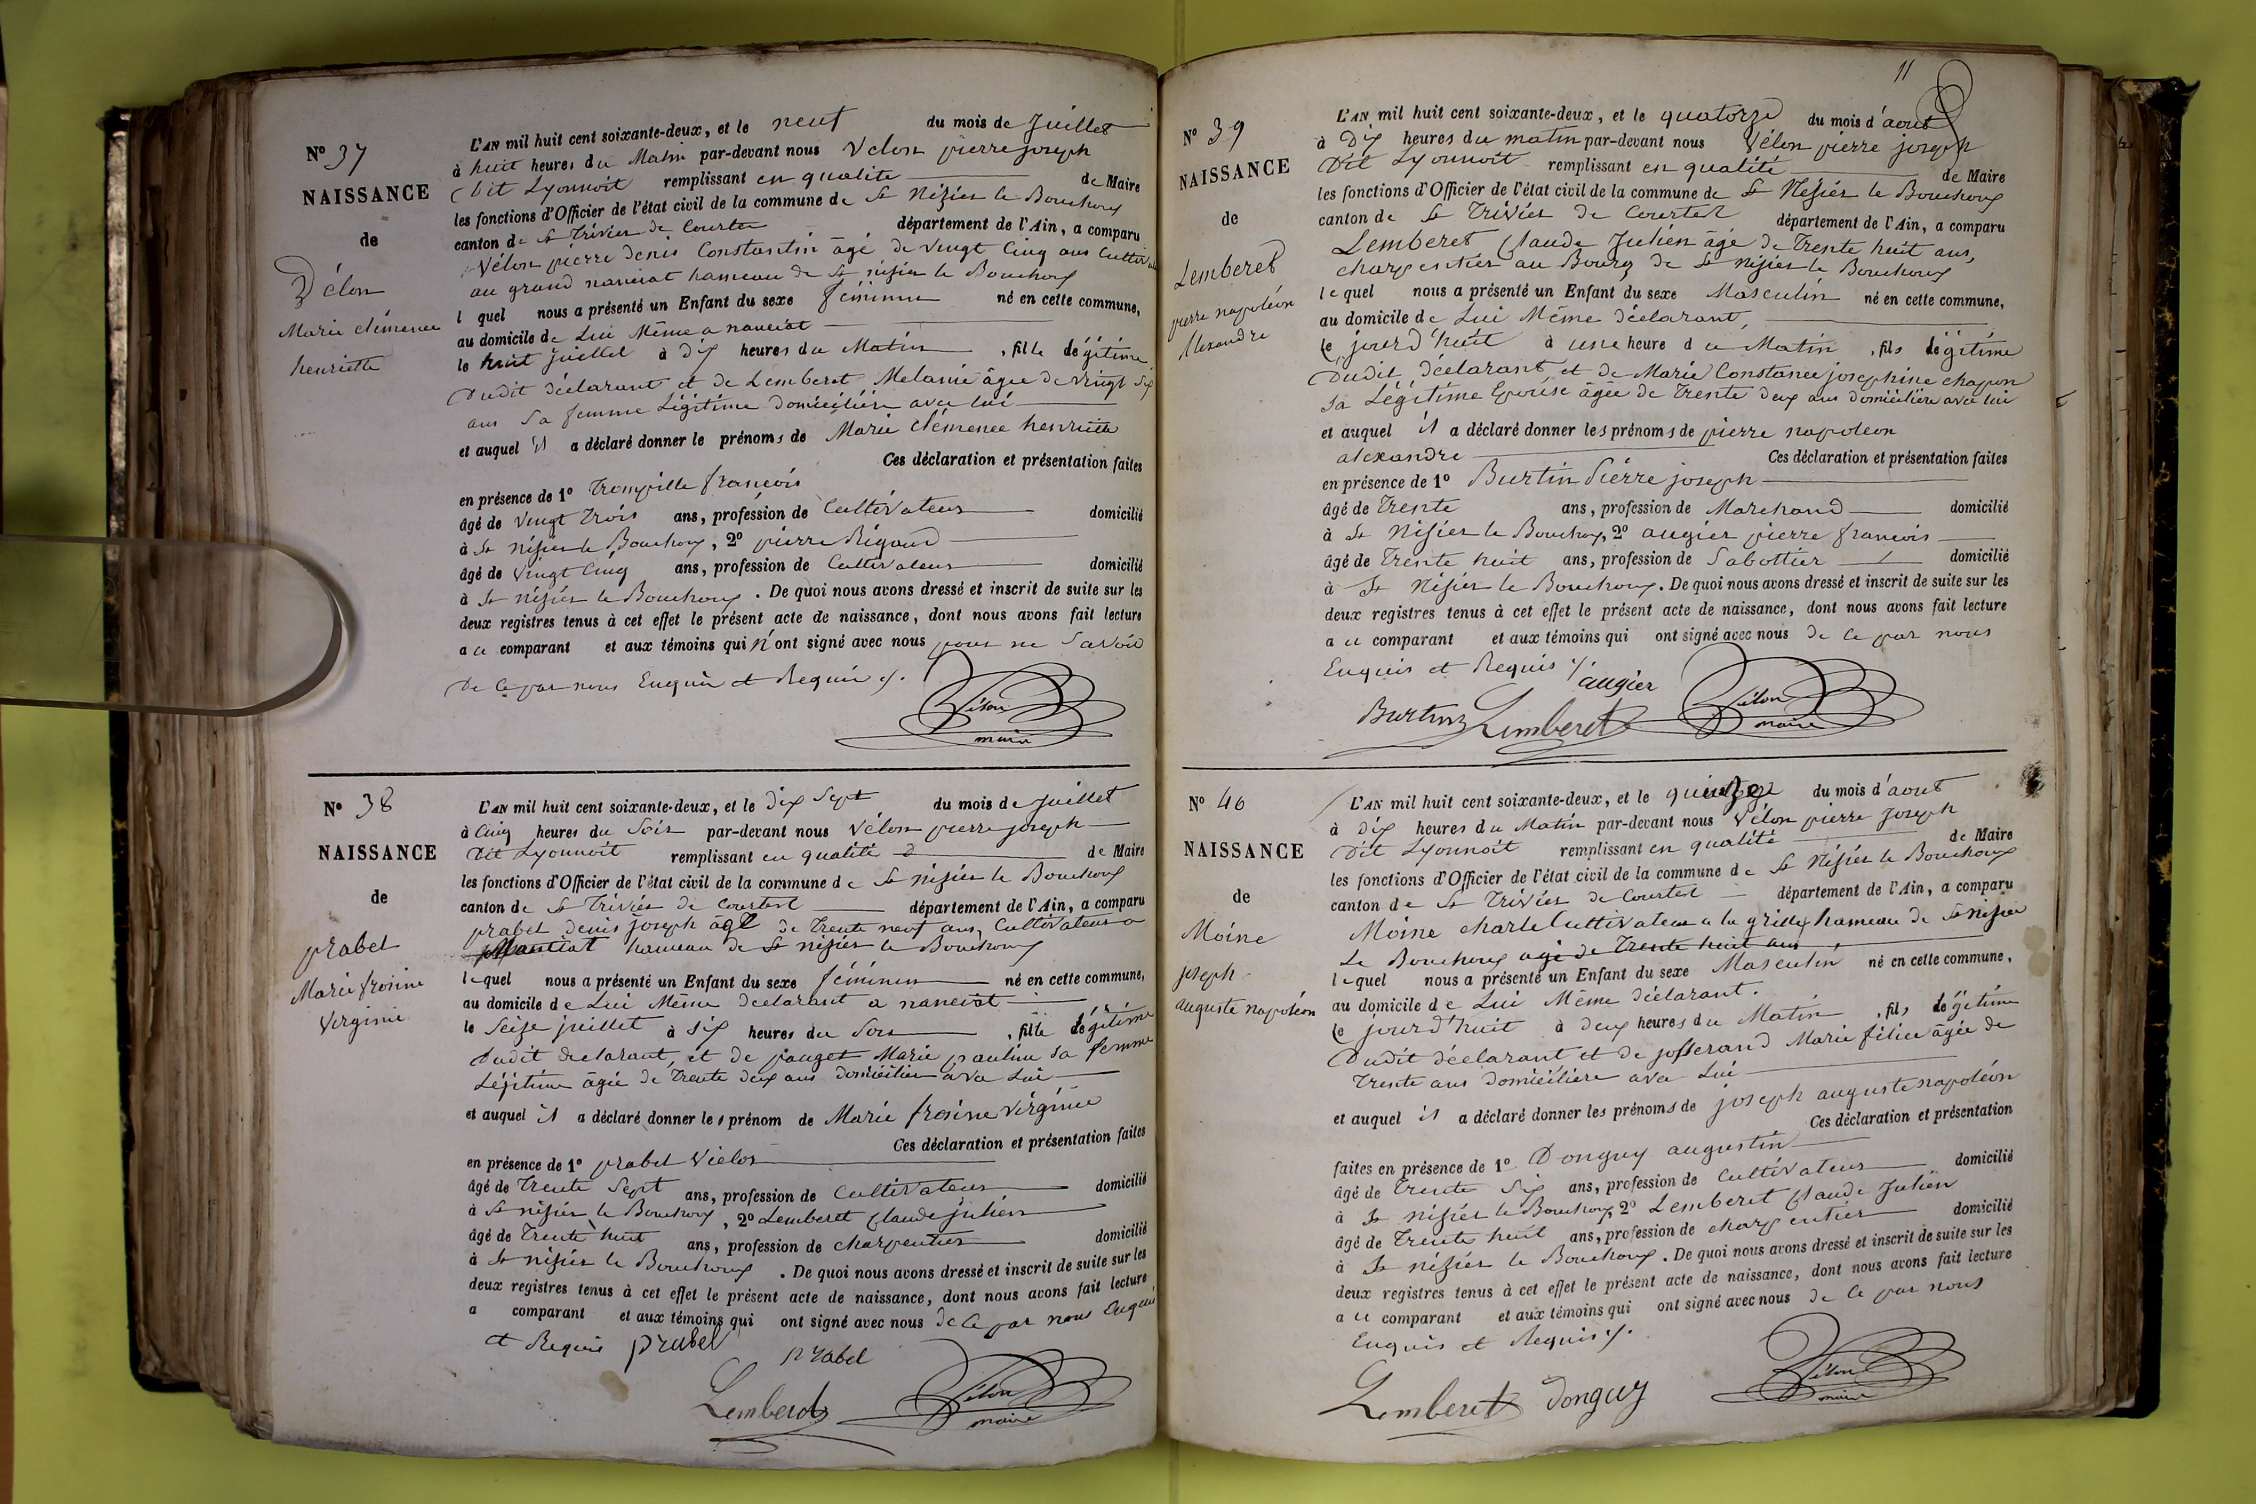 N° 37
NAISSANCE
de
Vélon
Marie clémence
henriette
L'AN mil huit cent soixante-deux, et le neuf du mois de Juillet
à huit heures du Matin par-devant nous Vélon pierre joseph
Dit Lyonnoit remplissant en qualité de Maire
les fonctions d'Officier de l'état civil de la commune de St Nizier le Bouchoux
canton de St Trivier de Courtes département de l'Ain, a comparu
Vélon pierre denis Constantin âgé de vingt Cinq ans Cultivateur
au grand nanciat hameau de St nizier le Bouchoux
l quel nous a présenté un Enfant du sexe féminin né en cette commune,
au domicile de Lui Même a nanciat
le huit juillet à Dix heures du Matin , fille légitime
Dudit déclarant et de Lemberet Melanie âgée de vingt Six
ans Sa femme Légitime domiciliée avec lui
et auquel il a déclaré donner le prénoms de Marie clémence henriette
Ces déclaration et présentation faites
en présence de 1° Trompille francois
âgé de Vingt Trois ans, profession de Cultivateur domicilié
à St nizier le Bouchoux, 2° pierre Rigaud
âgé de Vingt Cinq ans, profession de Cultivateur domicilié
à St nizier le Bouchoux. De quoi nous avons dressé et inscrit de suite sur les
deux registres tenus à cet effet le présent acte de naissance, dont nous avons fait lecture
a u comparant et aux témoins qui n'ont signé avec nous pour ne Savoir
De Ce par nous Enquis et Requis
Vélon
maire
N° 38
NAISSANCE
de
prabel
Marie frosine
Virginie
L'AN mil huit cent soixante-deux, et le dix Sept du mois de Juillet
à Cinq heures du Soir par-devant nous Vélon pierre joseph
Dit Lyonnoit remplissant en qualité d de Maire
les fonctions d'Officier de l'état civil de la commune de St nizier le Bouchoux
canton de St Trivier de Courtes département de l'Ain, a comparu
prabel denis joseph âgé de Trente neuf ans, Cultivateur a
hameau de St nizier le Bouchoux
lequel nous a présenté un Enfant du sexe féminin né en cette commune,
au domicile de Lui Même déclarant a nanciat
le Seize juillet à six heures du Soir , fille légitime
Dudit déclarant, et de pauget Marie pauline sa femme
Légitime âgée de Trente deux ans domiciliée avec Lui
et auquel il a déclaré donner les prénom de Marie frosine Virginie
Ces déclaration et présentation faites
en présence de 1° prabel Victor
âgé de Trente Sept ans, profession de Cultivateur domicilié
à St nizier le Bouchoux, 2° Lemberet Claude julien
âgé de Trente huit ans, profession de charpentier domicilié
à St nizier le Bouchoux. De quoi nous avons dressé et inscrit de suite sur les
deux registres tenus à cet effet le présent acte de naissance, dont nous avons fait lecture
a comparant et aux témoins qui ont signé avec nous de Ce par nous Enquis
et Requis prabel
prabel
Lemberet
Vélon
maire
11
N° 39
NAISSANCE
de
Lemberet
pierre napoléon
Alexandre
L'AN mil huit cent soixante-deux, et le quatorze du mois d'aout
à Dix heures du matin par-devant nous Vélon pierre joseph
Dit Lyonnoit remplissant en qualité de Maire
les fonctions d'Officier de l'état civil de la commune de St Nizier le Bouchoux
canton de St Trivier de Courtes département de l'Ain, a comparu
Lemberet Claude Julien âgé de Trente huit ans,
charpentier au Bourg de St nizier le Bouchoux
lequel nous a présenté un Enfant du sexe Masculin né en cette commune,
au domicile de Lui Même déclarant,
le jourd'huit à une heure du Matin , fils légitime
Dudit déclarant et de Marie Constance josephine chapon
sa Légitime Epouse âgée de Trente deux ans domiciliée avec lui
et auquel il a déclaré donner les prénoms de pierre napoleon
alexandre Ces déclaration et présentation faites
en présence de 1° Burtin Pierre joseph
âgé de Trente ans, profession de Marchand domicilié
à St Nizier le Bouchoux, 2° augier pierre francois
âgé de Trente huit ans, profession de Sabottier domicilié
à St Nizier le Bouchoux. De quoi nous avons dressé et inscrit de suite sur les
deux registres tenus à cet effet le présent acte de naissance, dont nous avons fait lecture
a u comparant et aux témoins qui ont signé avec nous de Ce par nous
Enquis et Requis
augier
Burtin Lemberet
Vélon
maire
N° 40
NAISSANCE
de
Moine
joseph
auguste napoléon
L'AN mil huit cent soixante-deux, et le quinze du mois d'aout
à Dix heures du Matin par-devant nous Vélon pierre joseph
Dit Lyonnoit remplissant en qualité de Maire
les fonctions d'Officier de l'état civil de la commune de St Nizier le Bouchoux
canton de St Trivier de Courtes département de l'Ain, a comparu
Moine charle Cultivateur a la hameau de St nizier
Le Bouchoux agé de Trente huit ans
lequel nous a présenté un Enfant du sexe Masculin né en cette commune,
au domicile de Lui Même déclarant.
le jourd'huit à deux heures du Matin , fils légitime
Dudit déclarant et de josserand Marie félicie âgée de
Trente ans domiciliere avec Lui
et auquel il a déclaré donner les prénoms de joseph auguste napoléon
Ces déclaration et présentation
faites en présence de 1° Donguy augustin
âgé de Trente Six ans, profession de Cultivateur domicilié
à St nizier le Bouchoux, 2° Lemberet Claude Julien
âgé de Trente huit ans, profession de charpentier domicilié
à St nizier le Bouchoux. De quoi nous avons dressé et inscrit de suite sur les
deux registres tenus à cet effet le présent acte de naissance, dont nous avons fait lecture
a u comparant et aux témoins qui ont signé avec nous de Ce par nous
Enquis et Requis
Lemberet Donguy
Vélon
maire